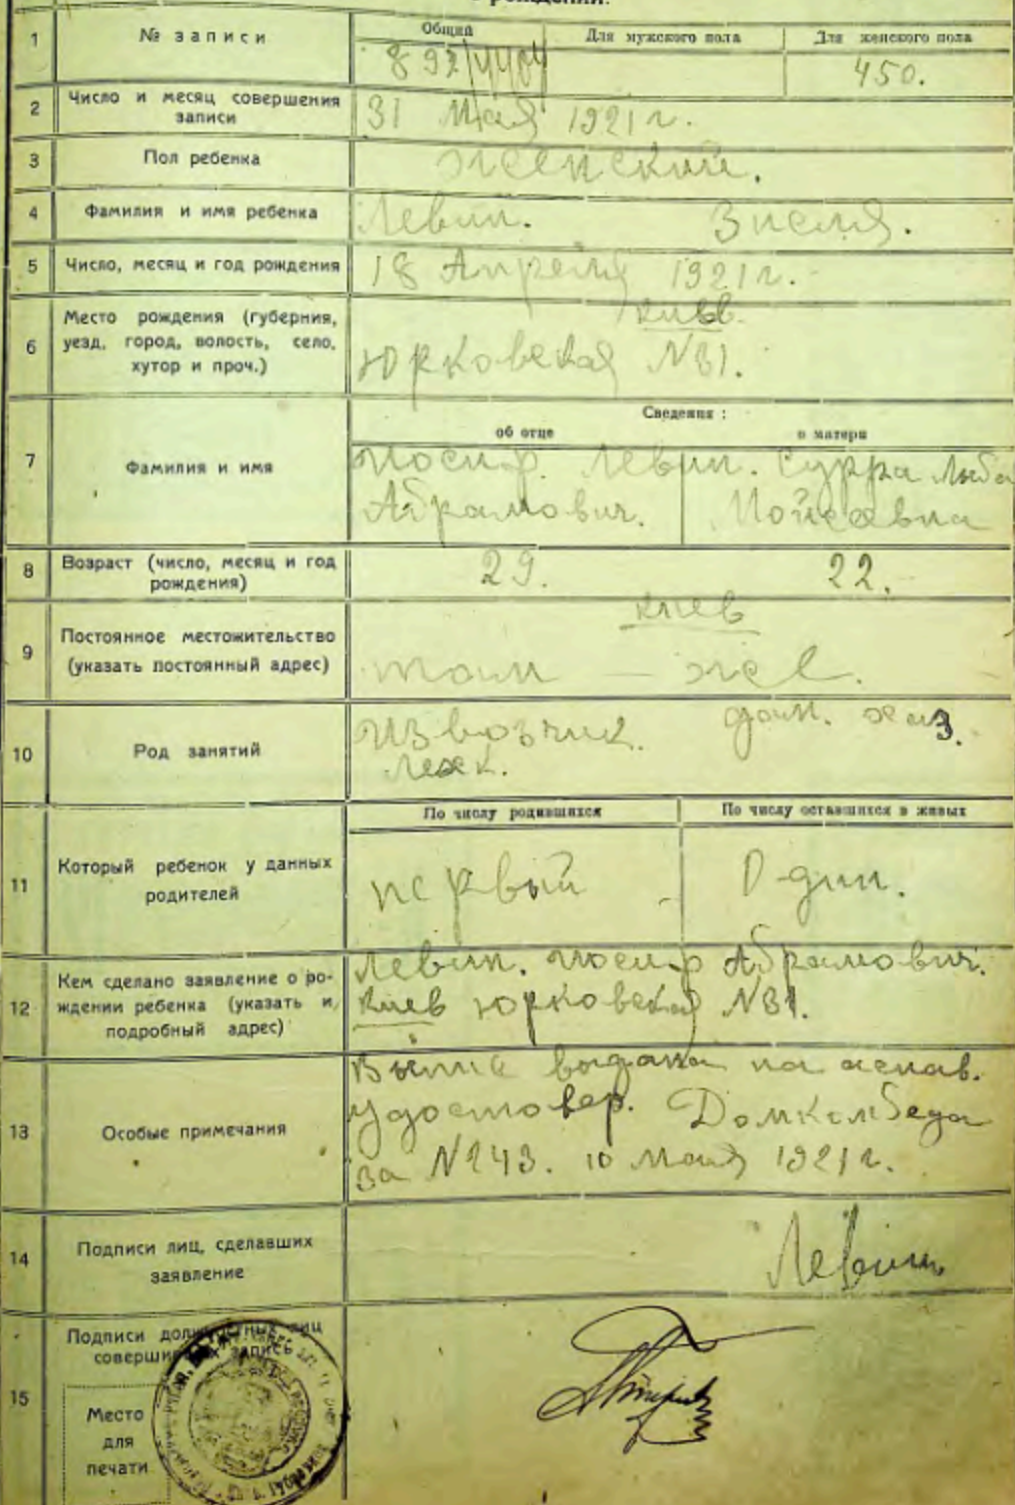 о рождении.
1 № записи Общий Для мужского пола Для женского пола
450.
2 Число и месяц совершения записи
31 Мая 1921 г.
3 Пол ребенка
женский.
4 Фамилия и имя ребенка
Левин. Зисля.
5 Число, месяц и год рождения
18 Апреля 1921 г.
6 Место рождения (губерния,
уезд, город, волость, село,
хутор и проч.)
Киев.
Юрковская N31.
Сведения:
об отце о матери
7 Фамилия и имя
Иосиф Левин. Сурра Люба
Абрамович. Мойсеевна
8 Возраст (число, месяц и год
рождения)
29. 22.
9 Постоянное местожительство
(указать постоянный адрес)
Киев
там — же.
10 Род занятий
Извозчик дом. хоз.
легк.
По числу родившихся По числу оставшихся в живых
11 Который ребенок у данных
родителей
первый Один.
12 Кем сделано заявление о ро-
ждении ребенка (указать и
подробный адрес)
Левин. Иосиф Абрамович.
Киев Юрковская N31.
13 Особые примечания
выдана на
удостовер. Домкомбеда
за N243. 10 Мая 1921 г.
14 Подписи лиц, сделавших
заявление
Левин
15 Подписи должностных лиц
совершивших запись
Место
для
печати